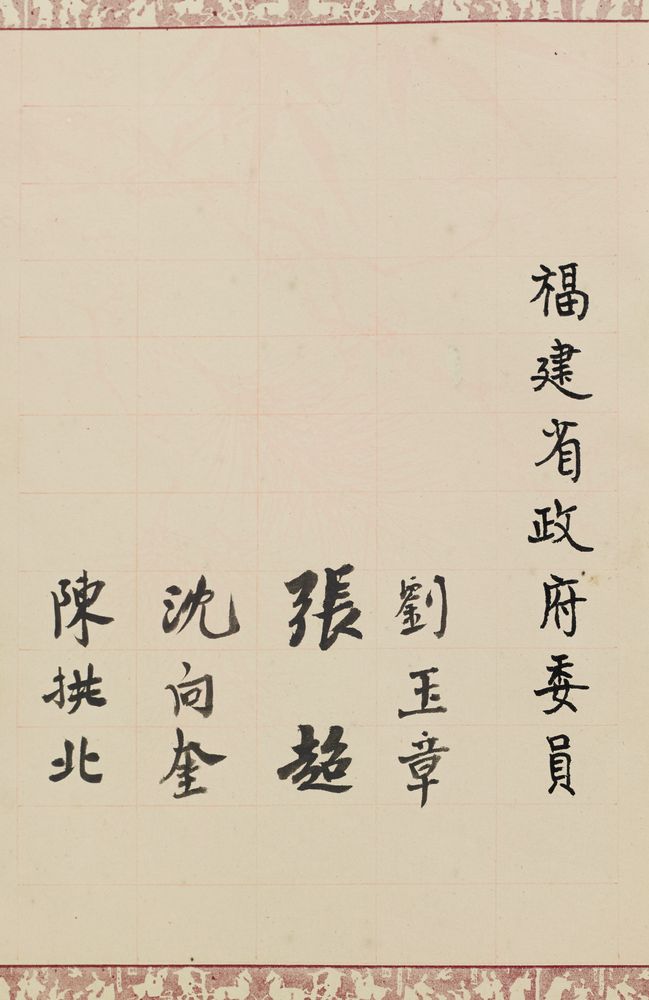 福建省政府委員
劉玉章
張超
沈向奎
陳拱北